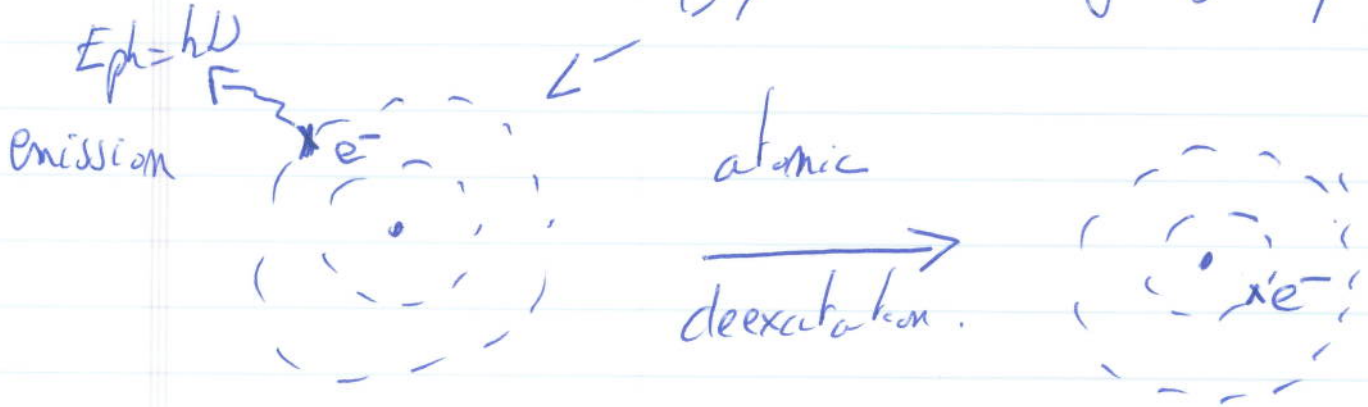 Eph = hν
emission
e⁻
atomic
deexcitation.
e⁻